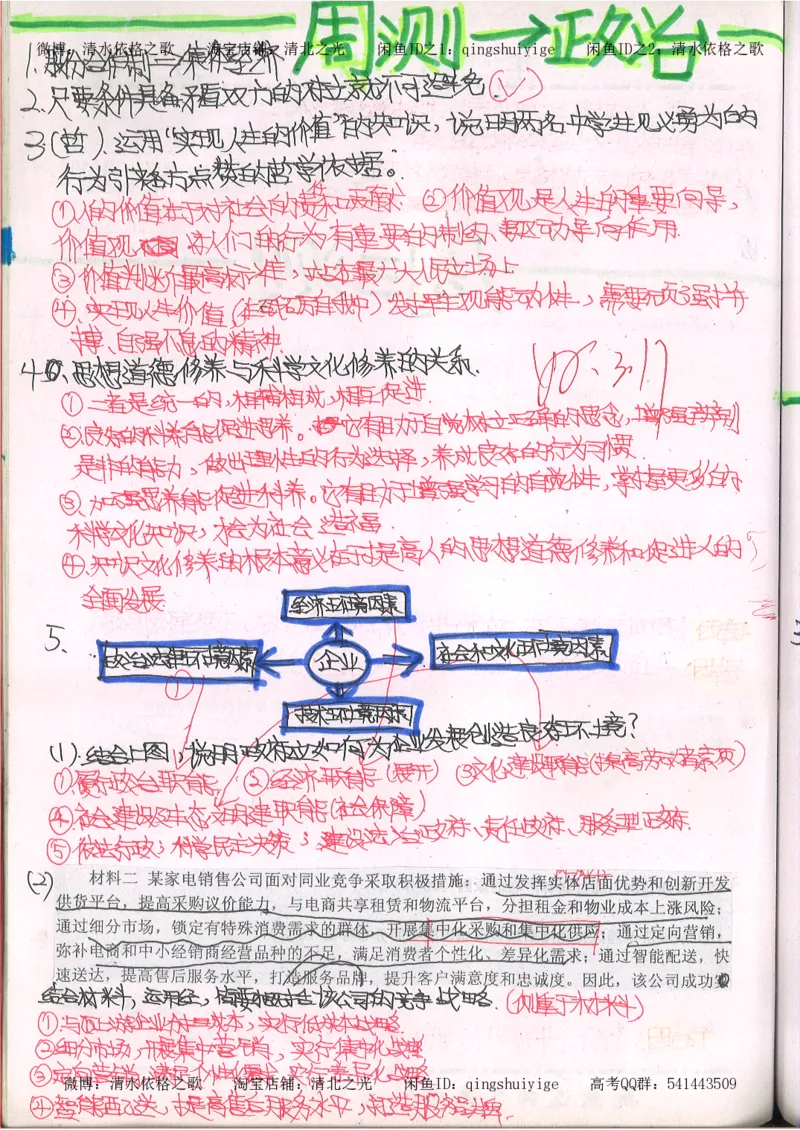 周测→政治
微博：清水依格之歌 淘宝店铺：清北之光 闲鱼ID之1：qingshuiyige 闲鱼ID之2：清水依格之歌
1.股份合作制=集体经济
2.只要条件具备矛盾双方的对立就不可避免(√)
3(哲).运用"实现人生的价值"的知识，说明两名中学生见义勇为的
行为引来方点赞的哲学依据。
①人的价值在于对社会的贡献和责任 ②价值观是人生的重要向导，
价值观对人们的行为有重要的制约、驱动导向作用
③价值判断的最高标准，站在最广大人民立场上
④.实现人生价值（在砥砺自我中）发挥主观能动性，需要顽强拼
搏、自强不息的精神
4、思想道德修养与科学文化修养的关系.
①二者是统一的，相辅相成，相互促进.
②良好的科养能促进思养。它有助于自觉树立正确的思想，增强辨别
是非的能力，做出理性的行为选择，养成良好的行为习惯.
③.加强思养能促进科养。它有助于增强学习的自觉性，掌握更多的
科学文化知识，才会为社会造福.
④.知识文化修养的根本意义在于提高人的思想道德修养和促进人的
全面发展.
经济环境因素
5、
政治法律环境因素
企业
社会和文化环境因素
技术环境因素
①
(1).结合上图，说明政府应如何为企业发展创造良好环境？
①履行政治职能 ②经济职能（展开） ③文化建设职能(提高劳动者素质)
④.社会建设及生态文明建职能(社会保障)
⑤依法行政；科学民主决策；建设法治政府、责任政府、服务型政府.
(2)
材料二 某家电销售公司面对同业竞争采取积极措施：通过发挥实体店面优势和创新开发
供货平台，提高采购议价能力，与电商共享租赁和物流平台，分担租金和物业成本上涨风险；
通过细分市场，锁定有特殊消费需求的群体，开展集中化采购和集中化供应；通过定向营销，
弥补电商和中小经销商经营品种的不足，满足消费者个性化、差异化需求；通过智能配送，快
速送达，提高售后服务水平，打造服务品牌，提升客户满意度和忠诚度。因此，该公司成功
结合材料，运用经，概括该公司的竞争战略.(侧重于材料)
①与同上游企业分担成本，实行低成本战略
②细分市场，开展集中营销，实行集中化战略
③定向营销，满足个性化需求，实行差异化战略
微博：清水依格之歌 淘宝店铺：清北之光 闲鱼ID：qingshuiyige 高考QQ群：541443509
④智能配送，提高售后服务水平，打造服务品牌.